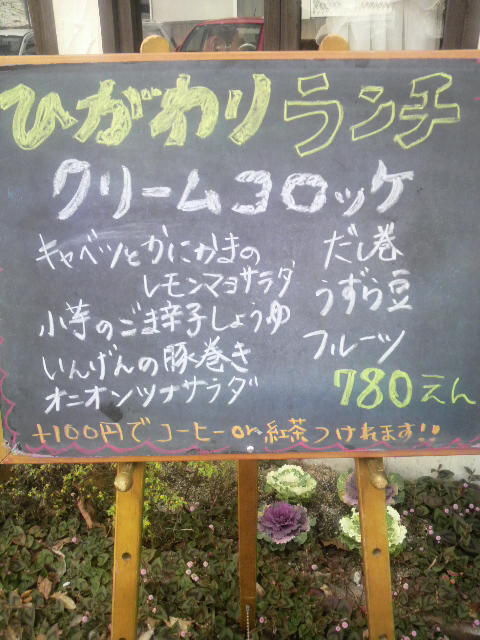 ひがわりランチ
クリームコロッケ
キャベツとかにかまの
レモンマヨサラダ
小芋のごま辛子しょうゆ
いんげんの豚巻き
オニオンツナサラダ
だし巻
うずら豆
フルーツ
780えん
+100円でコーヒーor紅茶つけれます!!